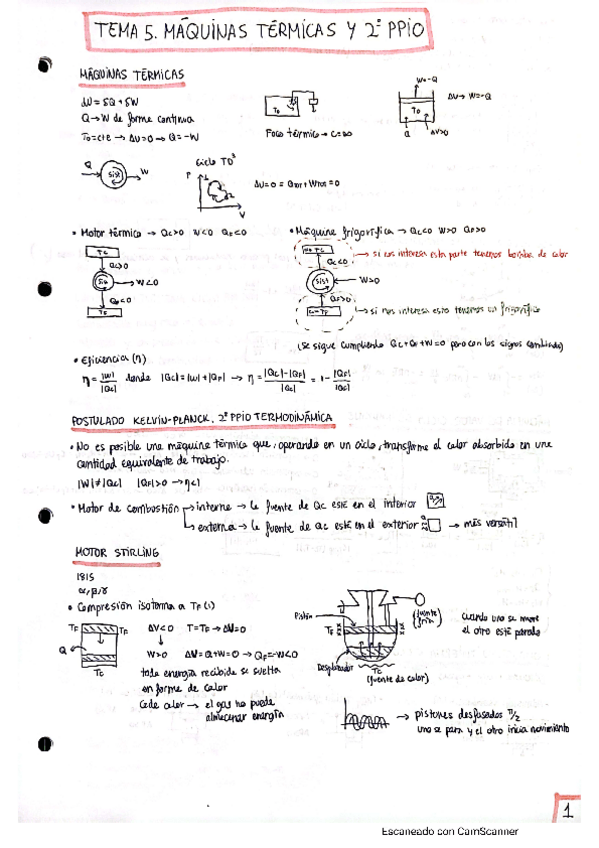 TEMA 5. MÁQUINAS TÉRMICAS Y 2º PPIO
MÁQUINAS TÉRMICAS
dU = δQ + δW
Q→W de forma continua
T0=cte → ΔU=0 → Q=-W
T0
Foco térmico → C=∞
W=-Q
T0
Q ΔU>0
ΔU→ W=-Q
Q sist W
Ciclo TD
P
V
ΔU=0 = QTOT + WTOT = 0
• Motor térmico → QC>0 W<0 QF<0
TC
QC>0
sis → W<0
QF<0
TF
• Máquina frigorífica → QC<0 W>0 QF>0
TC → si nos interesa esta parte tenemos bomba de calor
QC<0
sist W>0
QF>0
TF → si nos interesa esto tenemos un frigorífico
(Se sigue cumpliendo QC+QF+W=0 pero con los signos cambiados)
• Eficiencia (η)
η = |W|/|QC| donde |QC|=|W|+|QF| → η = |QC|-|QF|/|QC| = 1 - |QF|/|QC|
POSTULADO KELVIN-PLANCK. 2º PPIO TERMODINÁMICA
• No es posible una máquina térmica que, operando en un ciclo, transforme el calor absorbido en una
cantidad equivalente de trabajo.
|W|≠|QC| |QF|>0 → η<1
• Motor de combustión → interna → la fuente de QC esté en el interior
→ externa → la fuente de QC esté en el exterior → más versátil
MOTOR STIRLING
1815
α, β, γ
• Compresión isoterma a TF (1)
TF TF
Q
TC
ΔV<0 T=TF → ΔU=0
W>0 ΔU=Q+W=0 → QF=-W<0
toda energía recibida se suelta
en forma de calor
Cede calor → el gas no puede
almacenar energía
Pistón
TF
(fuente
fría)
Desplazador
TC
(fuente de calor)
cuando uno se mueve
el otro está parado
→ pistones desfasados π/2
uno se para y el otro inicia movimiento
1
Escaneado con CamScanner